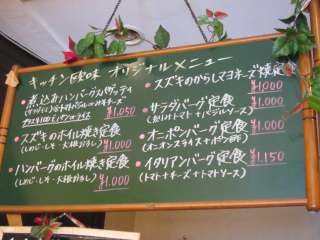 キッチン欧味 オリジナルメニュー
煮込みハンバーグスパゲッティ
¥1,050
スズキのホイル焼き定食
(しめじ・しそ・大根おろし) ¥1,000
ハンバーグのホイル焼き定食
(しめじ・しそ・大根おろし) ¥1,000
スズキのからしマヨネーズ焼定
¥1000
サラダバーグ定食
(カットトマト+バジルソース) ¥1,000
オニポンバーグ定食
(オニオンスライス+ポン酢) ¥1,000
イタリアンバーグ定食 ¥1,150
(トマト+チーズ+トマトソース)